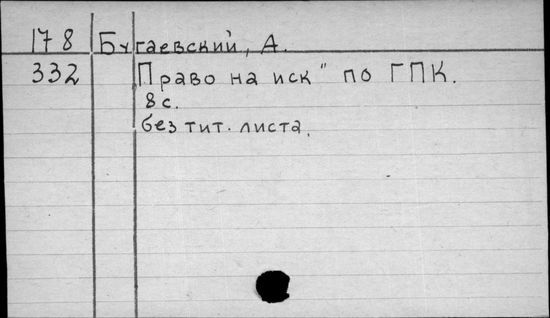 178 Бугаевский, А.
332 Право на иск" по ГПК.
8 с.
без тит. листа.